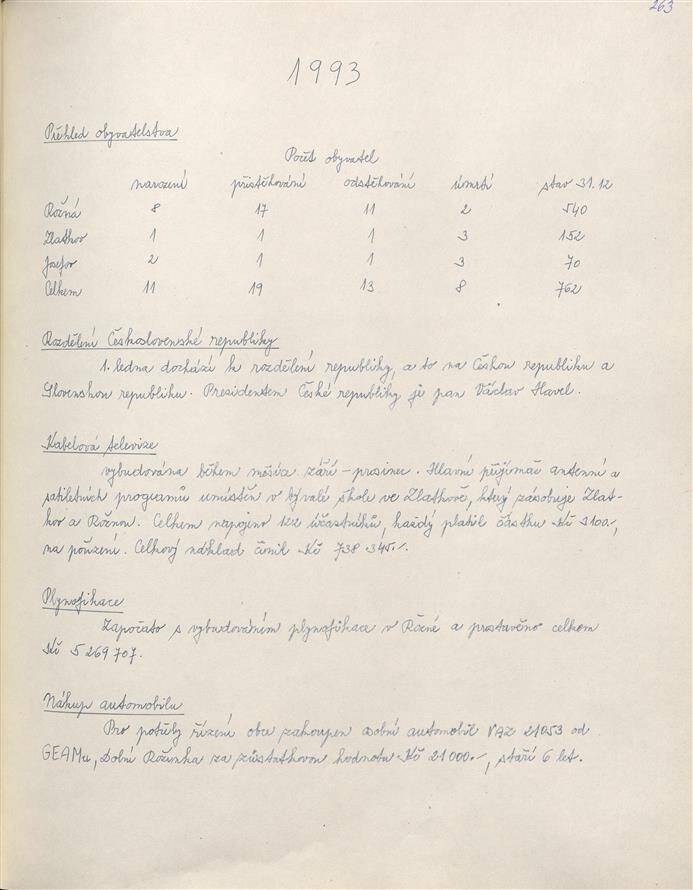 263
1993
Přehled obyvatelstva
Počet obyvatel
narození přistěhování odstěhování úmrtí stav 31.12
Rožná 8 17 11 2 540
Zlatkov 1 1 1 3 152
Josefov 2 1 1 3 70
Celkem 11 19 13 8 762
Rozdělení Československé republiky
1. ledna dochází k rozdělení republiky, a to na Českou republiku a
Slovenskou republiku. Presidentem České republiky je pan Václav Havel.
Kabelová televize
vybudována během měsíce září - prosinec. Hlavní přijímač antenní a
satelitních programů umístěn v bývalé škole ve Zlatkově, který zásobuje Zlat-
kov a Rožnou. Celkem napojeno účastníků, každý platil částku Kč 3100,
na pořízení. Celkový náklad činil Kč 738 345.-.
Plynofikace
Započato s vybudováním plynofikace v Rožné a prostavěno celkem
Kč 5 269 707.
Nákup automobilu
Pro potřeby řízení obce zakoupen osobní automobil VAZ 21053 od
GEAMu, Dolní Rožínka za zůstatkovou hodnotu Kč 21 000.-, stáří 6 let.